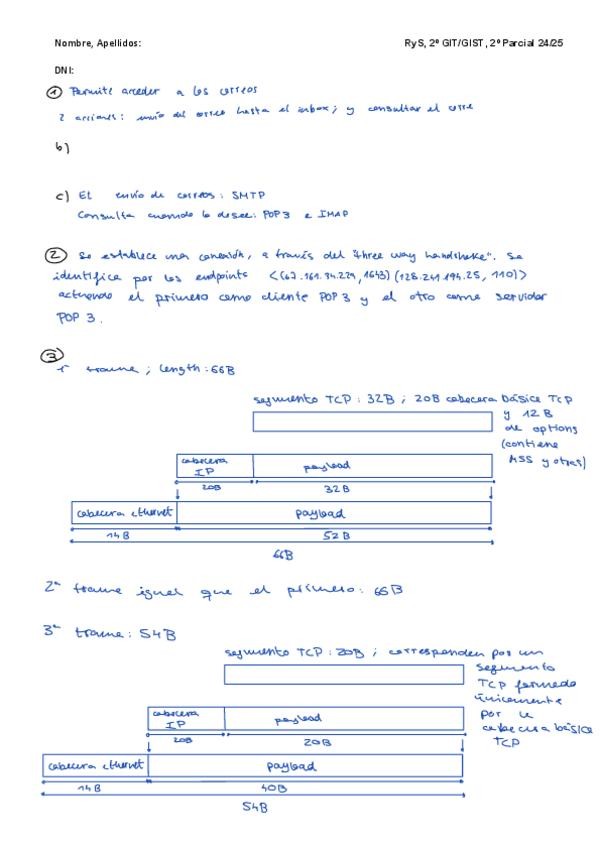 Nombre, Apellidos: RyS, 2º GIT/GIST, 2º Parcial 24/25
DNI:
① Permite acceder a los correos
2 acciones: envío del correo hasta el inbox; y consultar el corre
b)
c) El envío de correos: SMTP
Consulta cuando lo desee: POP3 e IMAP
② Se establece una conexión, a través del "three way handshake". Se
identifica por los endpoints <(67.161.34.229, 1643) (128.241.194.25, 110)>
actuando el primero como cliente POP3 y el otro como servidor
POP 3.
③
1ª trama; length: 66B
segmento TCP: 32B; 20B cabecera básica TCP
y 12B
de options
(contiene
MSS y otras)
cabecera
IP
payload
20B
32B
cabecera ethernet payload
14B 52B
66B
2ª trama igual que el primero: 66B
3ª trama: 54B
segmento TCP: 20B; corresponden por un
segmento
TCP formado
únicamente
por la
cabecera básica
TCP
cabecera
IP
payload
20B
20B
cabecera ethernet payload
14B 40B
54B